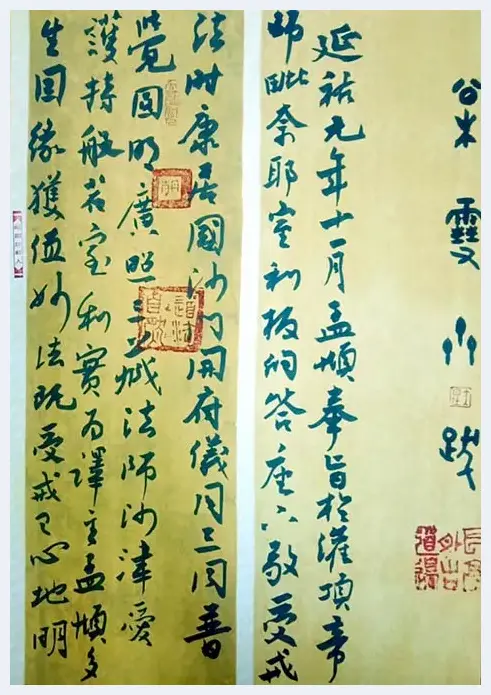 山跋
延祐元年十一月孟頫奉旨於灌頂帝
師毗奈耶室利板的答座下敬受戒
法時康居國沙門開府儀同三司普
覺圓明廣照三藏法師沙津愛
護持般若室利實為譯主孟頫多
生因緣獲值妙法既受戒已心地明